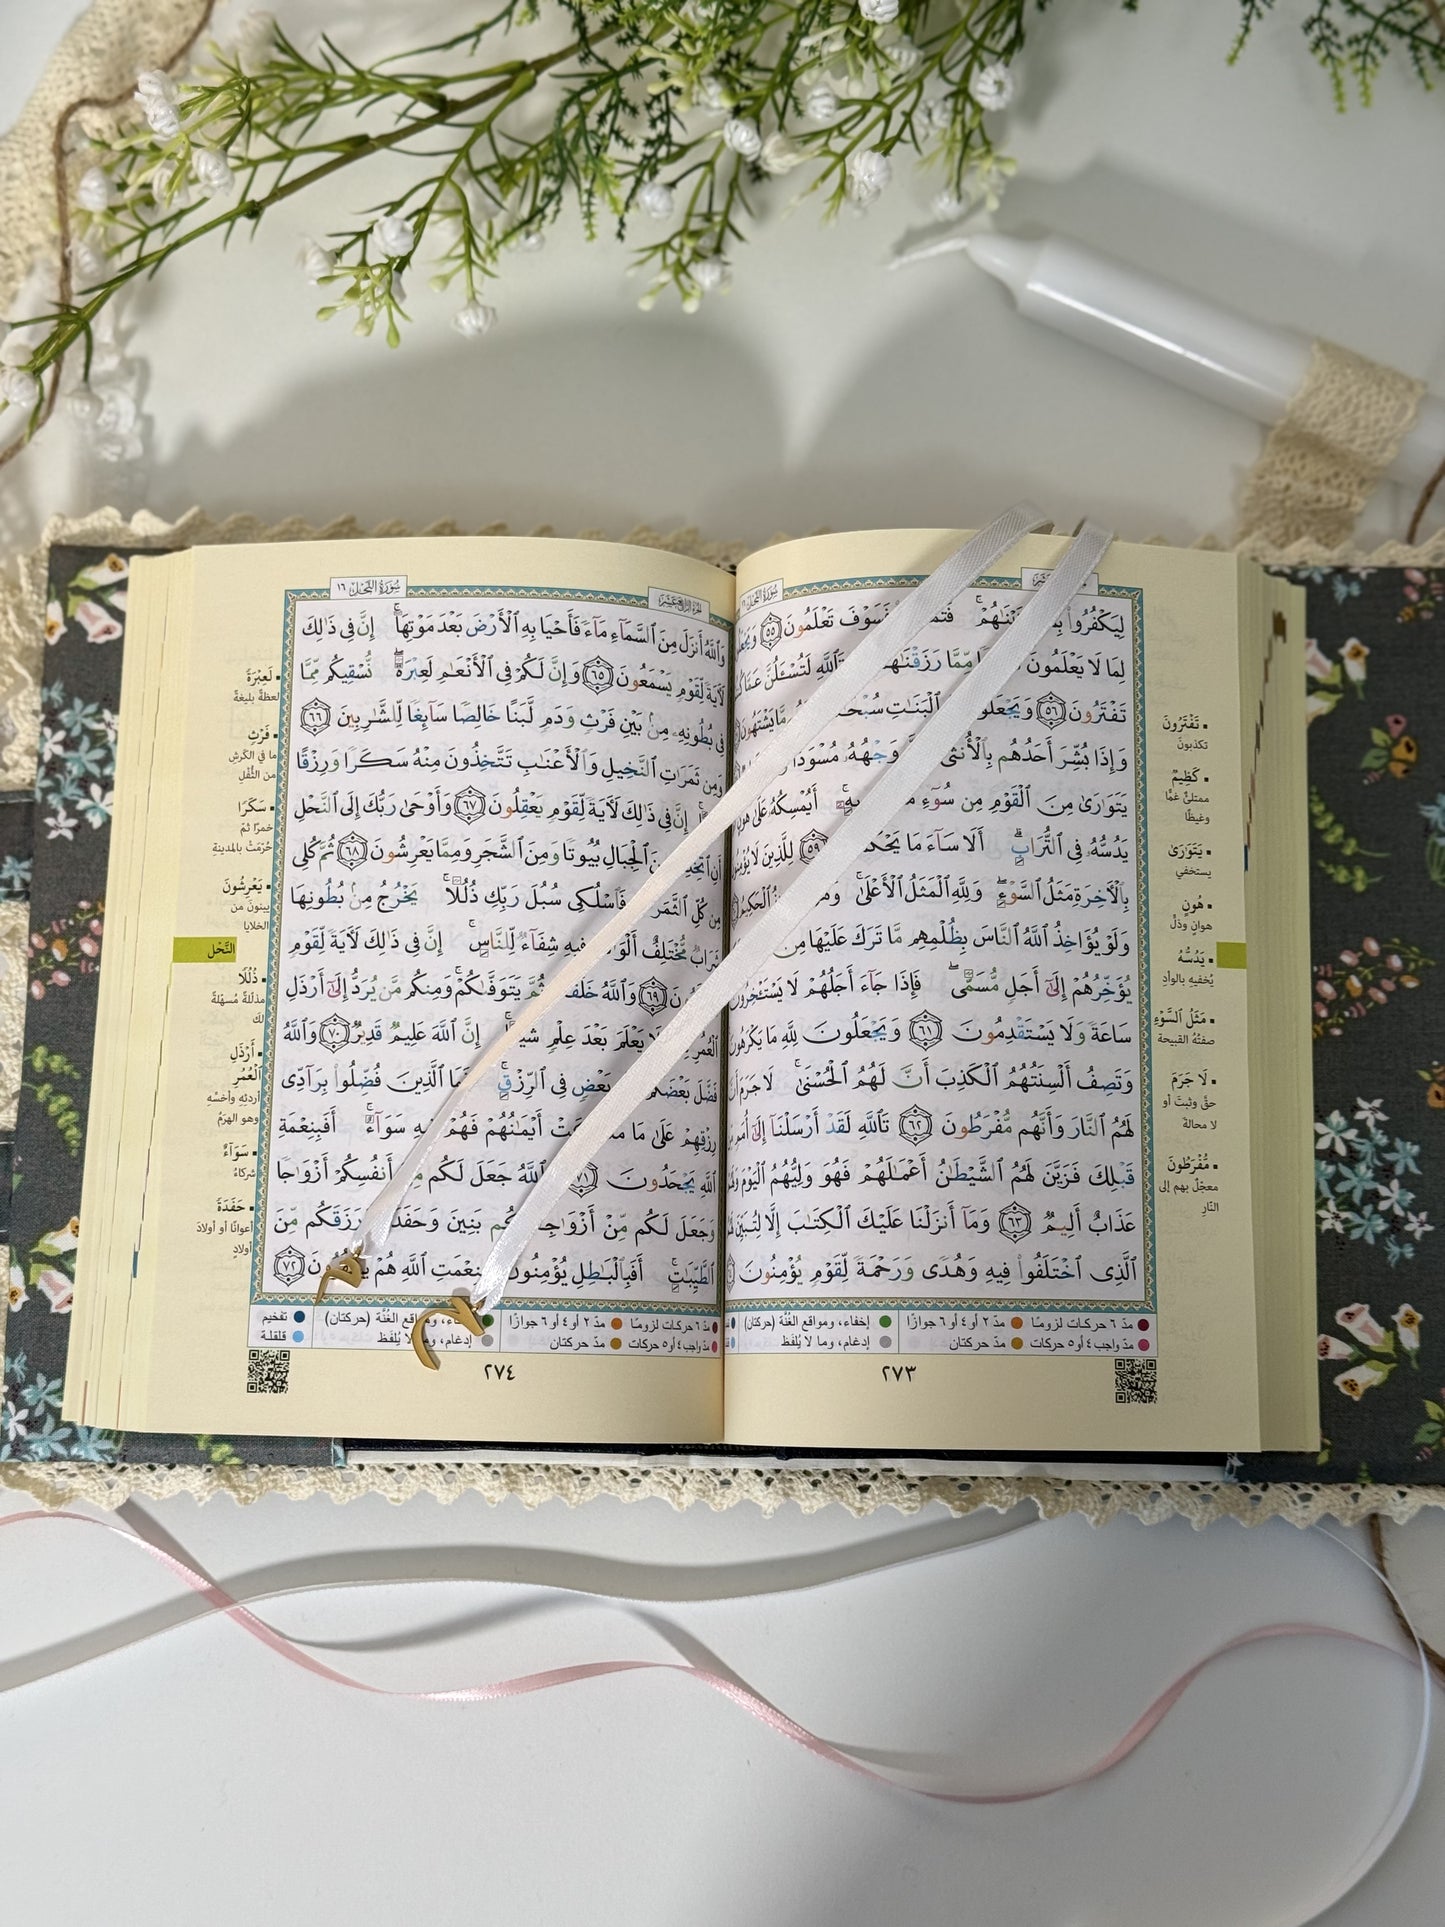 سُورَةُ النَّحْلِ
لِيَكْفُرُوا۟ ءَاتَيْنَـٰهُمْ ۚ فَسَوْفَ تَعْلَمُونَ ٥٥
لِمَا لَا يَعْلَمُونَ مِّمَّا رَزَقْنَـٰهُمْ ۗ تَٱللَّهِ لَتُسْـَٔلُنَّ عَمَّا
تَفْتَرُونَ ٥٦ وَيَجْعَلُونَ ٱلْبَنَـٰتِ مَّا يَشْتَهُونَ
وَإِذَا بُشِّرَ أَحَدُهُم بِٱلْأُنثَىٰ وَجْهُهُۥ مُسْوَدًّا
يَتَوَٰرَىٰ مِنَ ٱلْقَوْمِ مِن سُوٓءِ أَيُمْسِكُهُۥ عَلَىٰ هُونٍ
يَدُسُّهُۥ فِى ٱلتُّرَابِ ۗ أَلَا سَآءَ مَا ٥٩ لِلَّذِينَ لَا
بِٱلْـَٔاخِرَةِ مَثَلُ ٱلسَّوْءِ ۖ وَلِلَّهِ ٱلْمَثَلُ ٱلْأَعْلَىٰ ۚ ٱلْحَكِيمُ
وَلَوْ يُؤَاخِذُ ٱللَّهُ ٱلنَّاسَ بِظُلْمِهِم مَّا تَرَكَ عَلَيْهَا مِن
يُؤَخِّرُهُمْ إِلَىٰٓ أَجَلٍ مُّسَمًّى ۖ فَإِذَا جَآءَ أَجَلُهُمْ لَا يَسْتَـْٔخِرُونَ
سَاعَةً وَلَا يَسْتَقْدِمُونَ ٦١ وَيَجْعَلُونَ لِلَّهِ مَا يَكْرَهُونَ
وَتَصِفُ أَلْسِنَتُهُمُ ٱلْكَذِبَ أَنَّ لَهُمُ ٱلْحُسْنَىٰ ۖ لَا جَرَمَ
لَهُمُ ٱلنَّارَ وَأَنَّهُم مُّفْرَطُونَ ٦٢ تَٱللَّهِ لَقَدْ أَرْسَلْنَآ إِلَىٰٓ أُمَمٍ
قَبْلِكَ فَزَيَّنَ لَهُمُ ٱلشَّيْطَـٰنُ أَعْمَـٰلَهُمْ فَهُوَ وَلِيُّهُمُ ٱلْيَوْمَ
عَذَابٌ أَلِيمٌ ٦٣ وَمَآ أَنزَلْنَا عَلَيْكَ ٱلْكِتَـٰبَ إِلَّا لِتُبَيِّنَ
ٱلَّذِى ٱخْتَلَفُوا۟ فِيهِ ۙ وَهُدًى وَرَحْمَةً لِّقَوْمٍ يُؤْمِنُونَ
تَفْتَرُونَ
تكذبون
كَظِيمٌ
ممتلئٌ غمًّا
وغيظًا
يَتَوَٰرَىٰ
يستخفي
هُونٍ
هوانٍ وذلٍّ
يَدُسُّهُۥ
يُخفيهِ بالوأدِ
مَثَلُ ٱلسَّوْءِ
صفتُهُ القبيحة
لَا جَرَمَ
حقَّ وثبتَ أو
لا محالةَ
مُّفْرَطُونَ
معجلٌ بهم إلى
النّارِ
مدّ ٦ حركات لزومًا مدّ ٢ أو ٤ أو ٦ جوازًا إخفاء، ومواقع الغُنَّة (حركتان)
مدّ واجب ٤ أو ٥ حركات مدّ حركتان إدغام، وما لا يُلفَظ
٢٧٣
الجزءُ الرَّابِعَ عَشَرَ سُورَةُ النَّحْلِ ١٦
وَٱللَّهُ أَنزَلَ مِنَ ٱلسَّمَآءِ مَآءً فَأَحْيَا بِهِ ٱلْأَرْضَ بَعْدَ مَوْتِهَآ ۚ إِنَّ فِى ذَٰلِكَ
لَـَٔايَةً لِّقَوْمٍ يَسْمَعُونَ ٦٥ وَإِنَّ لَكُمْ فِى ٱلْأَنْعَـٰمِ لَعِبْرَةً ۖ نُّسْقِيكُم مِّمَّا
فِى بُطُونِهِۦ مِنۢ بَيْنِ فَرْثٍ وَدَمٍ لَّبَنًا خَالِصًا سَآئِغًا لِّلشَّـٰرِبِينَ ٦٦
وَمِن ثَمَرَٰتِ ٱلنَّخِيلِ وَٱلْأَعْنَـٰبِ تَتَّخِذُونَ مِنْهُ سَكَرًا وَرِزْقًا
إِنَّ فِى ذَٰلِكَ لَـَٔايَةً لِّقَوْمٍ يَعْقِلُونَ ٦٧ وَأَوْحَىٰ رَبُّكَ إِلَى ٱلنَّحْلِ
أَنِ ٱلْجِبَالِ بُيُوتًا وَمِنَ ٱلشَّجَرِ وَمِمَّا يَعْرِشُونَ ٦٨ ثُمَّ كُلِى
مِن كُلِّ ٱلثَّمَرَٰتِ فَٱسْلُكِى سُبُلَ رَبِّكِ ذُلُلًا ۚ يَخْرُجُ مِنۢ بُطُونِهَا
شَرَابٌ مُّخْتَلِفٌ فِيهِ شِفَآءٌ لِّلنَّاسِ ۗ إِنَّ فِى ذَٰلِكَ لَـَٔايَةً لِّقَوْمٍ
٦٩ وَٱللَّهُ خَلَقَكُمْ ثُمَّ يَتَوَفَّىٰكُمْ ۚ وَمِنكُم مَّن يُرَدُّ إِلَىٰٓ أَرْذَلِ
ٱلْعُمُرِ لَا يَعْلَمَ بَعْدَ عِلْمٍ شَيْـًٔا ۚ إِنَّ ٱللَّهَ عَلِيمٌ قَدِيرٌ ٧٠ وَٱللَّهُ
فَضَّلَ بَعْضَكُمْ بَعْضٍ فِى ٱلرِّزْقِ ۚ فَمَا ٱلَّذِينَ فُضِّلُوا۟ بِرَآدِّى
رِزْقِهِمْ عَلَىٰ مَا أَيْمَـٰنُهُمْ فَهُمْ فِيهِ سَوَآءٌ ۚ أَفَبِنِعْمَةِ
ٱللَّهِ يَجْحَدُونَ ٧١ وَٱللَّهُ جَعَلَ لَكُم مِّنْ أَنفُسِكُمْ أَزْوَٰجًا
وَجَعَلَ لَكُم مِّنْ أَزْوَٰجِكُم بَنِينَ وَحَفَدَةً وَرَزَقَكُم مِّنَ
ٱلطَّيِّبَـٰتِ ۚ أَفَبِٱلْبَـٰطِلِ يُؤْمِنُونَ وَبِنِعْمَتِ ٱللَّهِ هُمْ ٧٢
لَعِبْرَةً
لعظةً بليغةً
فَرْثٍ
ما في الكَرِشِ
من الثُّفْلِ
سَكَرًا
خمرًا ثمّ
حُرِّمَتْ بالمدينةِ
يَعْرِشُونَ
يبنونَ من
الخلايا
النَّحْل
ذُلُلًا
مذلّلةً مُسهّلةً
لكِ
أَرْذَلِ
ٱلْعُمُرِ
أردئِهِ وأخسِّهِ
وهو الهرَمُ
سَوَآءٌ
شركاءُ
حَفَدَةً
أعوانًا أو أولادَ
أولادٍ
مدّ ٦ حركات لزومًا مدّ ٢ أو ٤ أو ٦ جوازًا ومواقع الغُنَّة (حركتان) تفخيم
مدّ واجب ٤ أو ٥ حركات مدّ حركتان إدغام، وما لا يُلفَظ قلقلة
٢٧٤